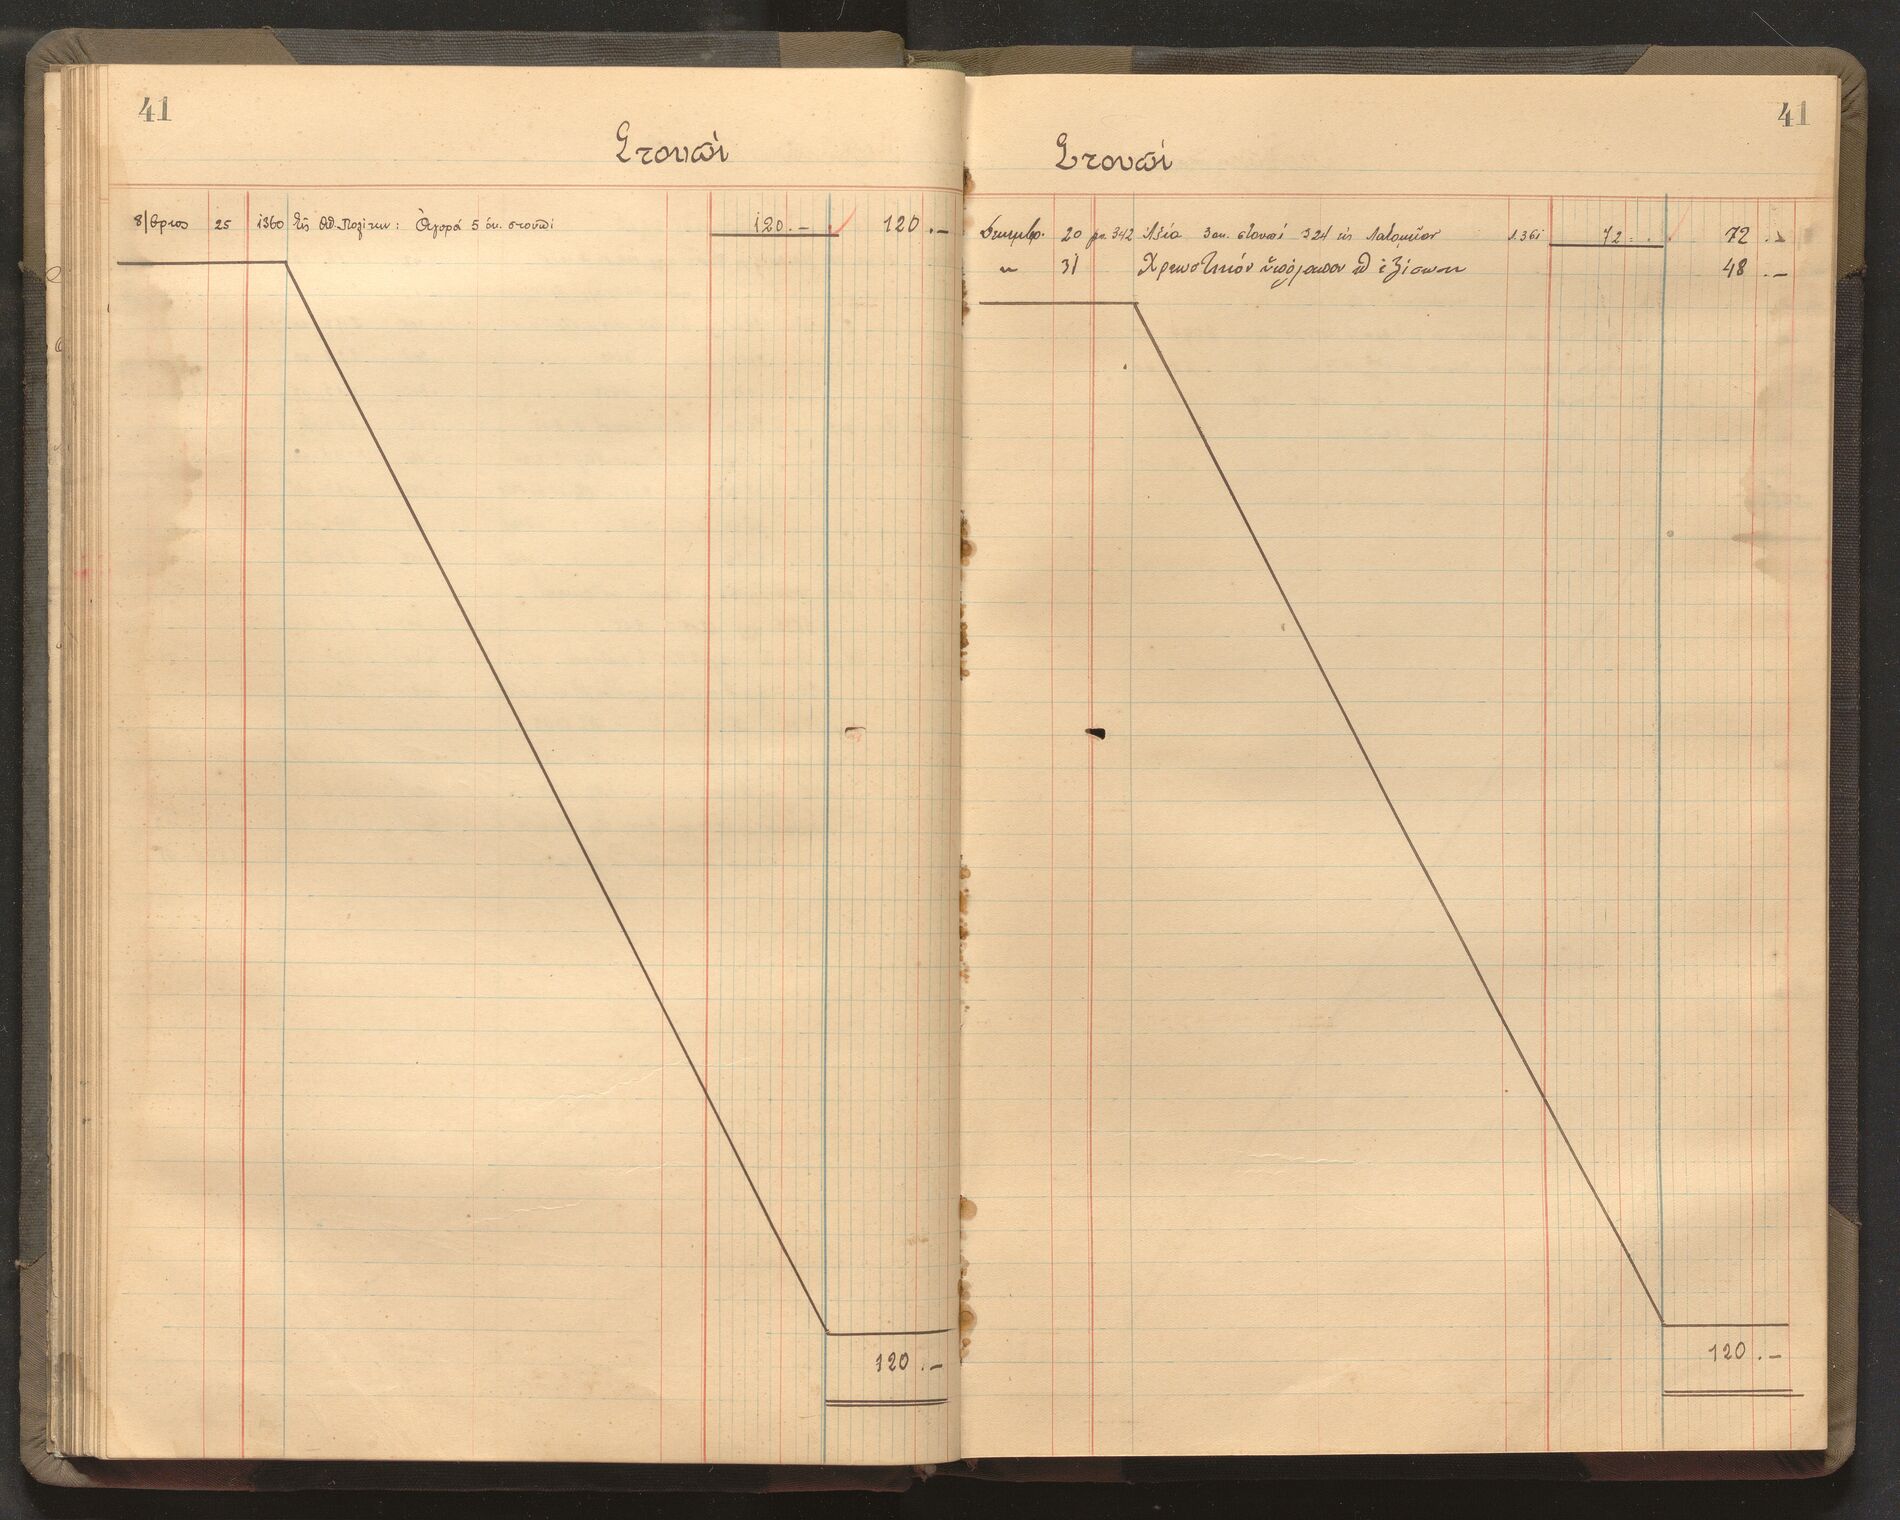 41
Στουπί
8/βριος 25 1360 Εἰς Ἀθ. Πολίτην: Ἀγορά 5 ὀκ. στουπί 120.- 120.-
120.-
41
Στουπί
Δεκεμβρ. 20 342 Ἀξία 3 οκ. στουπί 324 εἰς Λατομεῖον 1361 72 72.-
" 31 Χρεωστικόν ὑπόλοιπον ἐξίσωσιν 48.-
120.-